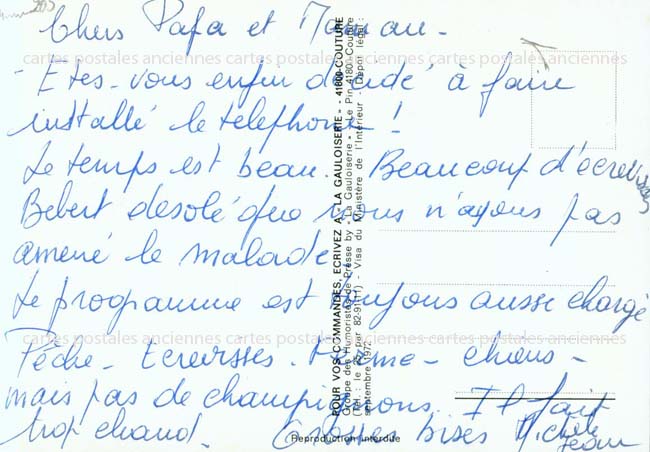 Chers Papa et Maman -
Etes-vous enfin décidé à faire
installé le telephone !
Le temps est beau. Beaucoup d'écrevisses
Bebert desolé que nous n'ayons pas
amené le malade
Le programme est toujours ausse chargé
Pêche - Ecrevisses - - chiens -
mais pas de champignons. Il fait
trop chaud. Grosses bises Michele
Jean
cartes postales anciennes cartes postales anciennes cartes postales anciennes
cartes postales anciennes cartes postales anciennes cartes postales anciennes
POUR VOS COMMANDES, ECRIVEZ A « LA GAULOISERIE » - 41800-COUTURE
Groupe des Humoristes de Presse by « La Gauloiserie » - Le Pin 4180-Couture
(Tél. : le 2 - par 82-91-11) - Visa du Ministère de l'Intérieur - Dépôt légal :
septembre 1972
Reproduction interdite